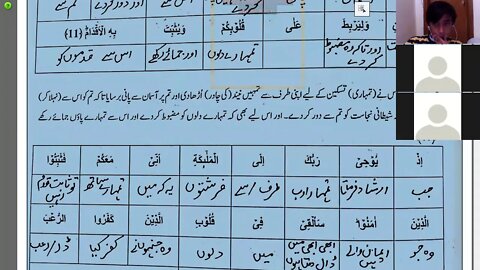 وَلِيَرْبِطَ عَلٰى قُلُوْبِكُمْ وَيُثَبِّتَ بِهِ الْاَقْدَامَ {11}
اور تاکہ وہ مضبوط کر دے تمہارے دلوں اور جمائے رکھے اس سے قدموں کو
نے (تمہاری) تسکین کے لیے اپنی طرف سے تمہیں نیند (کی چادر) اُڑھا دی اور تم پر آسمان سے پانی برسا دیا تاکہ تم کو اس سے (نہلا کر)
شیطانی نجاست کو تم سے دور کر دے۔ اور اس لیے بھی کہ تمہارے دلوں کو مضبوط کر دے اور اس سے تمہارے پاؤں جمائے رکھے
اِذْ يُوْحِيْ رَبُّكَ اِلَى الْمَلٰٓئِكَةِ اَنِّيْ مَعَكُمْ فَثَبِّتُوا
جب ارشاد فرماتا تمہارا رب طرف/سے فرشتوں یہ کہ میں تمہارے ساتھ تو ثابت قدم
الَّذِيْنَ اٰمَنُوْا سَاُلْقِيْ فِيْ قُلُوْبِ الَّذِيْنَ كَفَرُوا الرُّعْبَ
وہ جو ایمان والے ہیں ابھی ابھی میں ڈال دیتا ہوں میں دلوں وہ جنہوں نے کفر کیا ڈر/رعب